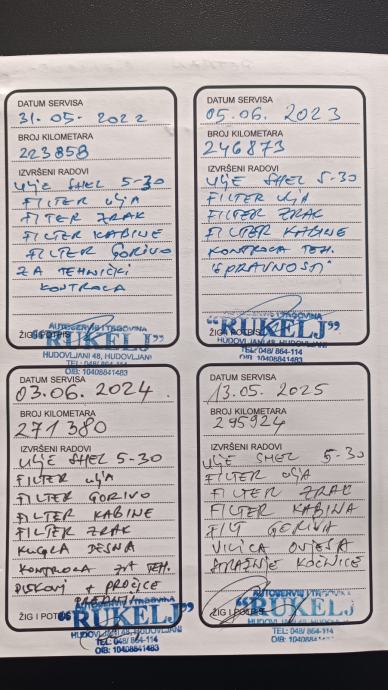 DATUM SERVISA
31.05.2022
BROJ KILOMETARA
223858
IZVRŠENI RADOVI
ULJE SHEL 5-30
FILTER ULJA
FILTER ZRAK
FILTER KABINE
FILTER GORIVO
ZA TEHNIČKI
KONTROLA
ŽIG I POTPIS
AUTOSERVIS I TRGOVINA
"RUKELJ"
HUDOVLJANI 48, HUDOVLJANI
TEL: 048/ 864-114
OIB: 10408841483
DATUM SERVISA
05.06.2023
BROJ KILOMETARA
246873
IZVRŠENI RADOVI
ULJE SHEL 5-30
FILTER ULJA
FILTER ZRAK
FILTER KABINE
KONTROLA TEH.
ISPRAVNOSTI
ŽIG I POTPIS
AUTOSERVIS I TRGOVINA
"RUKELJ"
HUDOVLJANI 48, HUDOVLJANI
TEL: 048/ 864-114
OIB: 10408841483
DATUM SERVISA
03.06.2024.
BROJ KILOMETARA
271380
IZVRŠENI RADOVI
ULJE SHEL 5-30
FILTER ULJA
FILTER GORIVO
FILTER KABINE
FILTER ZRAK
KUGLA DESNA
KONTROLA ZA TEH.
DISKOVI + PLOČICE
ŽIG I POTPIS
AUTOSERVIS I TRGOVINA
"RUKELJ"
HUDOVLJANI 48, HUDOVLJANI
TEL: 048/ 864-114
OIB: 10408841483
DATUM SERVISA
13.05.2025
BROJ KILOMETARA
295924
IZVRŠENI RADOVI
ULJE SHEL 5-30
FILTER ULJA
FILTER ZRAK
FILTER KABINA
FILT GORIVA
VILICA OVJESA
STRAŽNJE KOČNICE
ŽIG I POTPIS
AUTOSERVIS I TRGOVINA
"RUKELJ"
HUDOVLJANI 48, HUDOVLJANI
TEL: 048/ 864-114